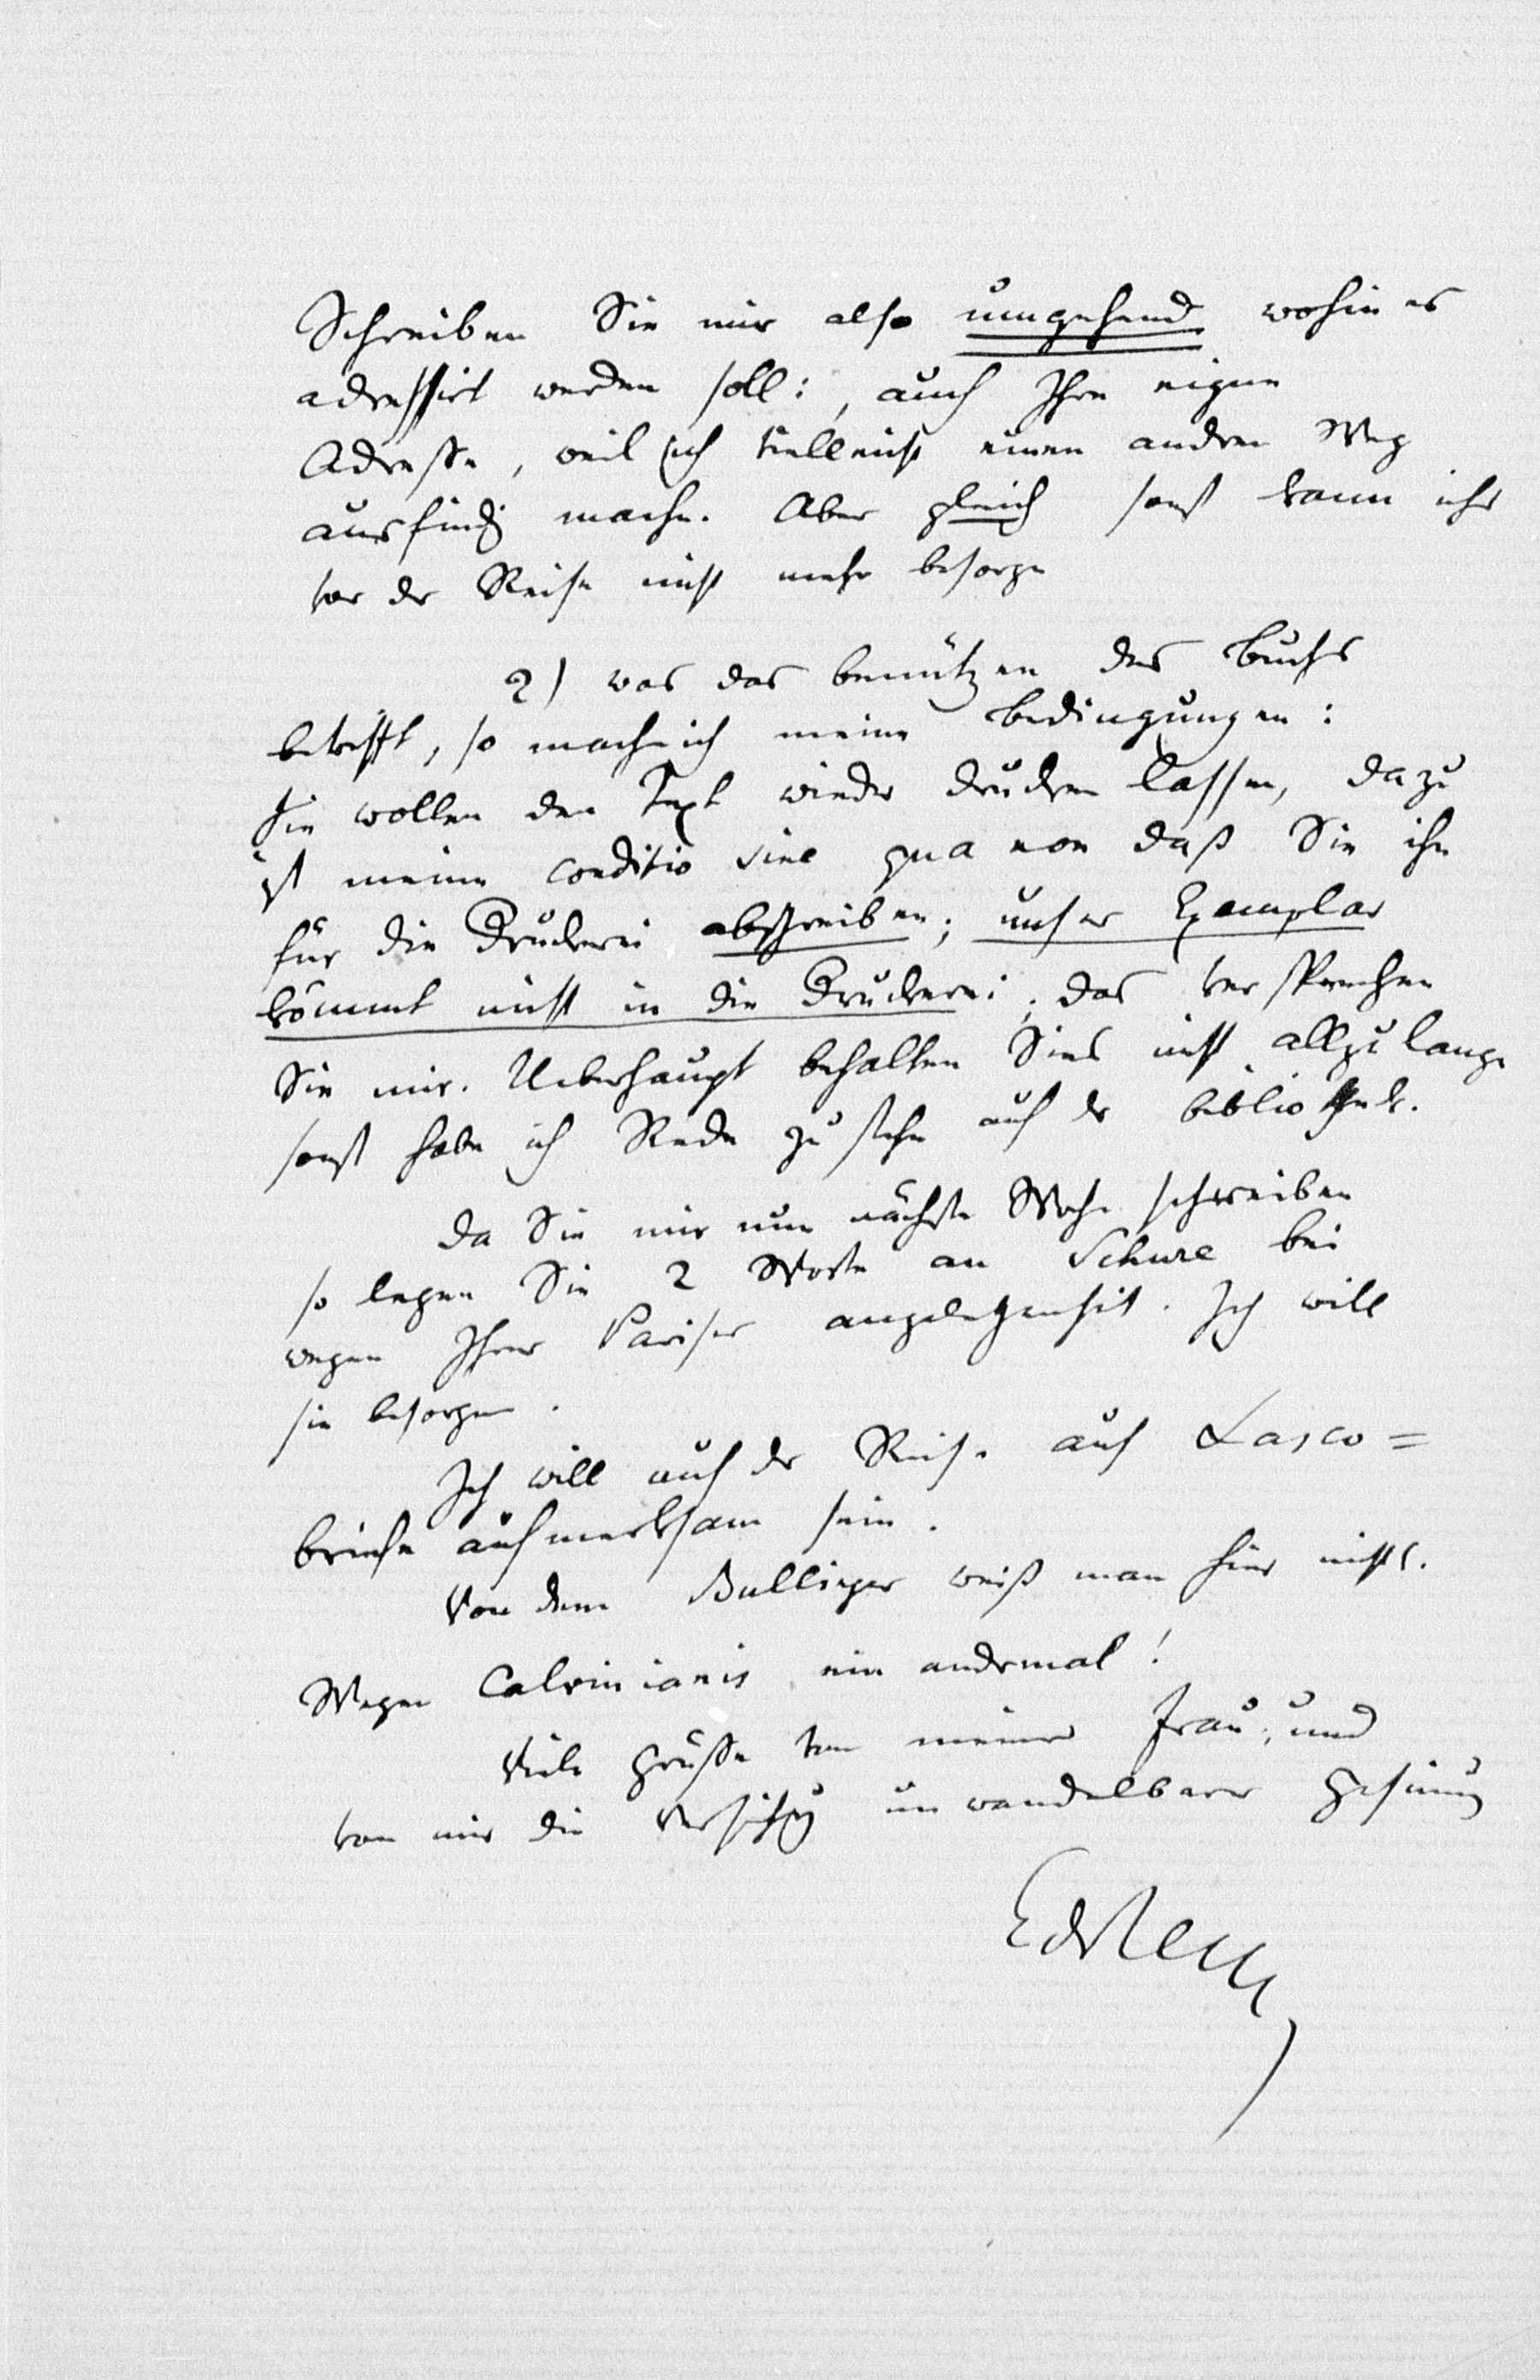 Schreiben Sie mir also umgehend wohin es
adressirt werden soll:, auch Ihre eigne
Adresse, weil ich vielleicht einen andren Weg
ausfindig mache. Aber gleich sonst kann ichs
vor der Reise nicht mehr besorgen
2) was das benützen des Buchs
betrifft, so mache ich meine Bedingungen:
Sie wollen den Text wieder drucken lassen, dazu
ist meine conditio sine qua non daß Sie ihn
für die Druckerei abschreiben; unser Exemplar
kömmt nicht in die Druckerei; das versprechen
Sie mir. Ueberhaupt behalten Sies nicht allzu lange
sonst habe ich Rede zu stehn auf der Bibliothek.
Da Sie mir nun nächste Woche schreiben
so legen Sie 2 Worte an Schure bei
wegen Ihrer Pariser Angelegenheit. Ich will
sie besorgen.
Ich will auf der Reise auf Lasco=
briefe aufmerksam sein.
Von dem Bullinger weiß man hier nichts.
Wegen Calvinianis ein andermal!
Viele Grüße von meiner Frau, und
von mir die Versicherung unwandelbarer Gesinnung
EdReuss